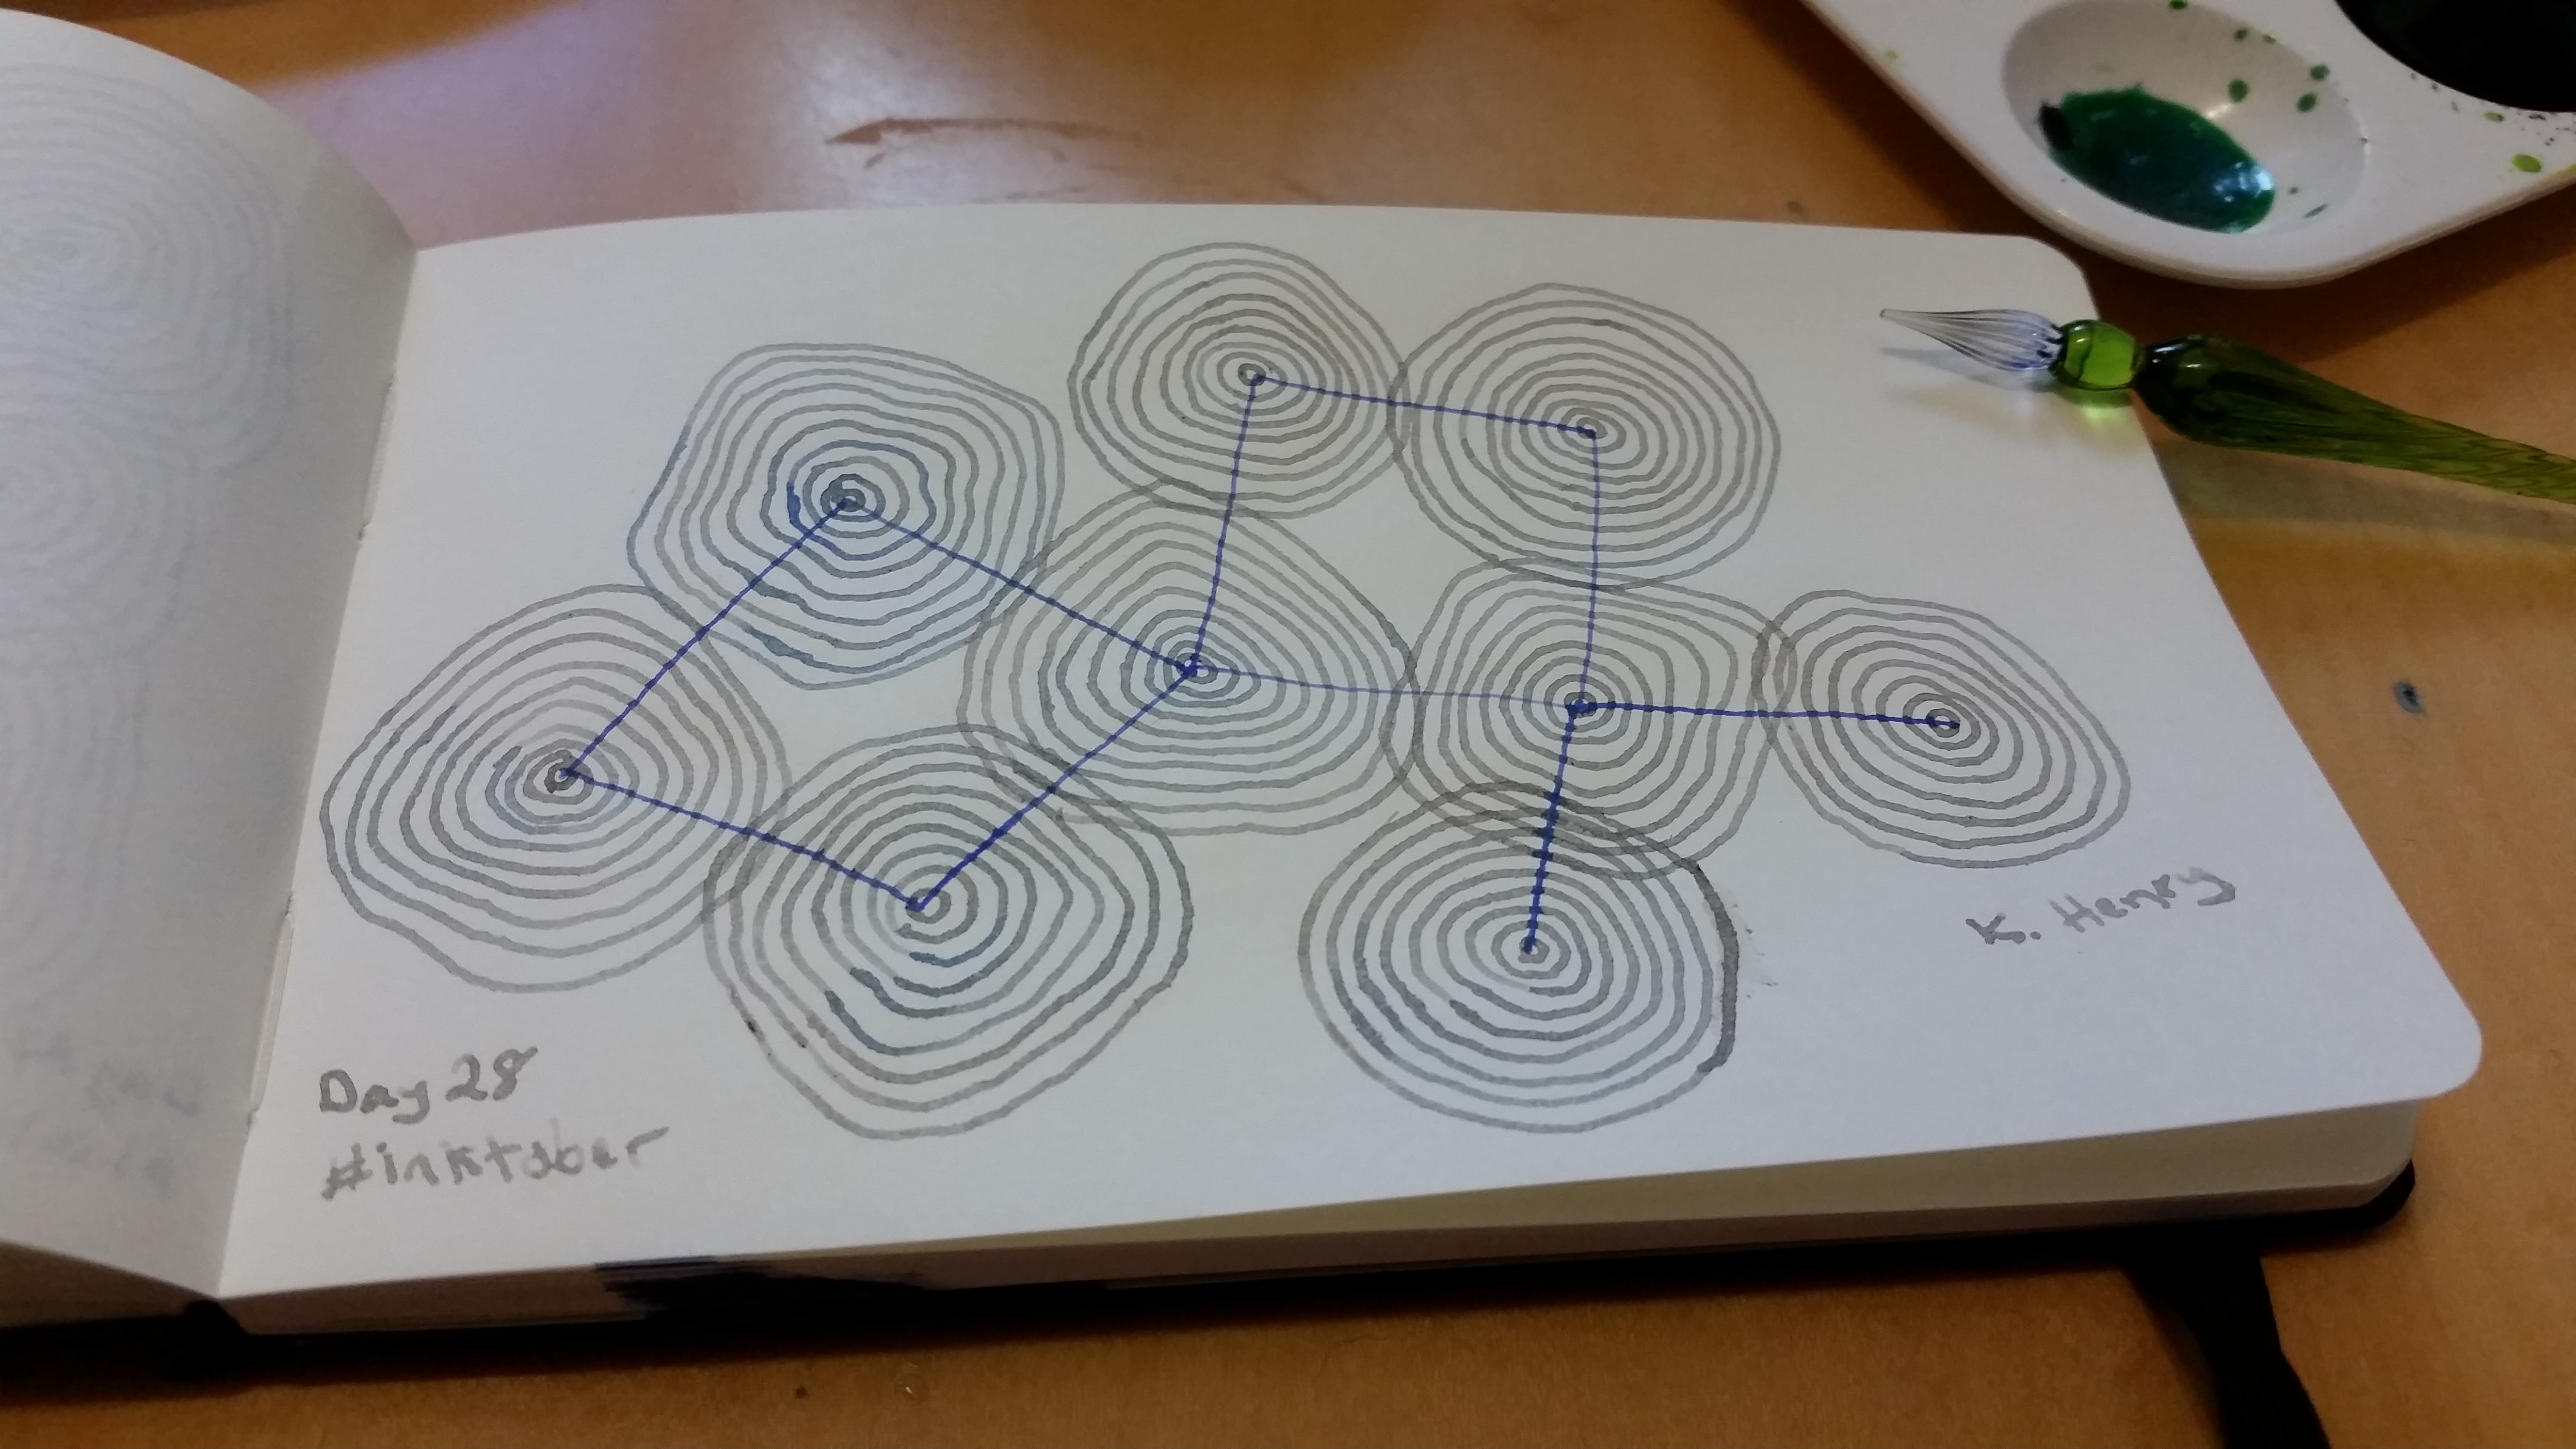 Day 28
#inktober
K. Henry